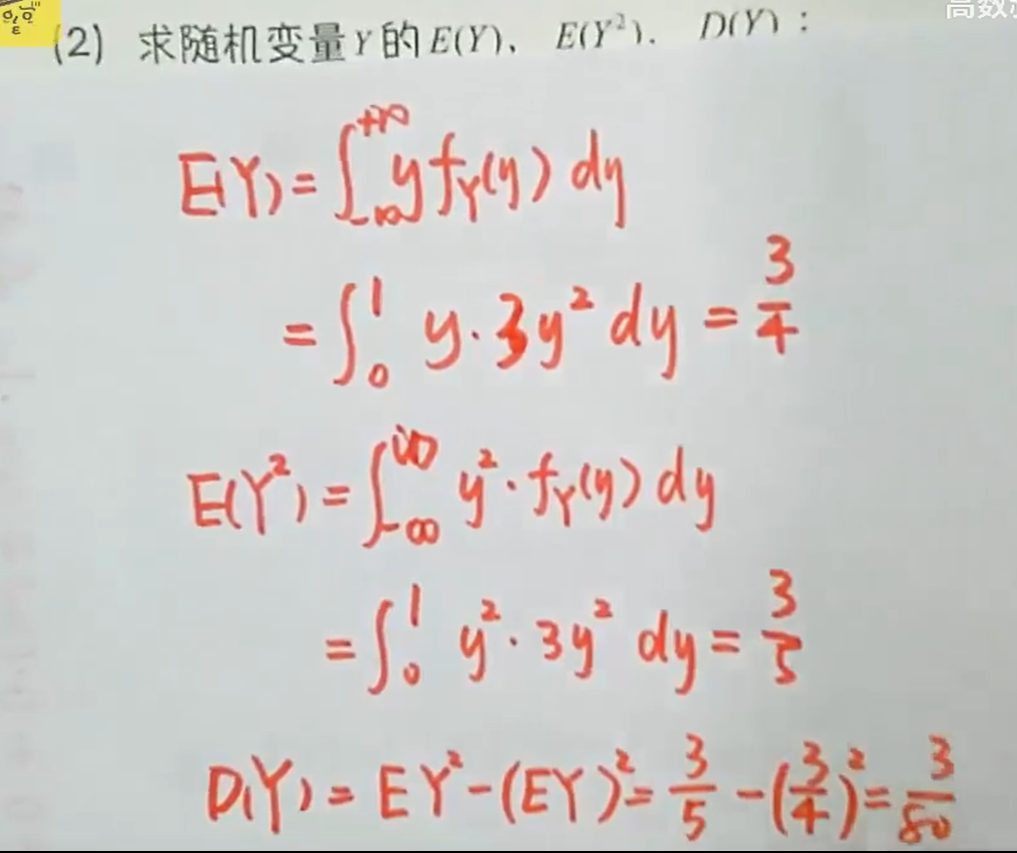 高数
(2) 求随机变量Y的E(Y)、E(Y²)、D(Y)：
E(Y)=∫_{-∞}^{+∞} y f_Y(y) dy
=∫_0^1 y·3y² dy = 3/4
E(Y²)=∫_{-∞}^{∞} y²·f_Y(y) dy
=∫_0^1 y²·3y² dy = 3/5
D(Y)=EY²-(EY)²=3/5-(3/4)²=3/80